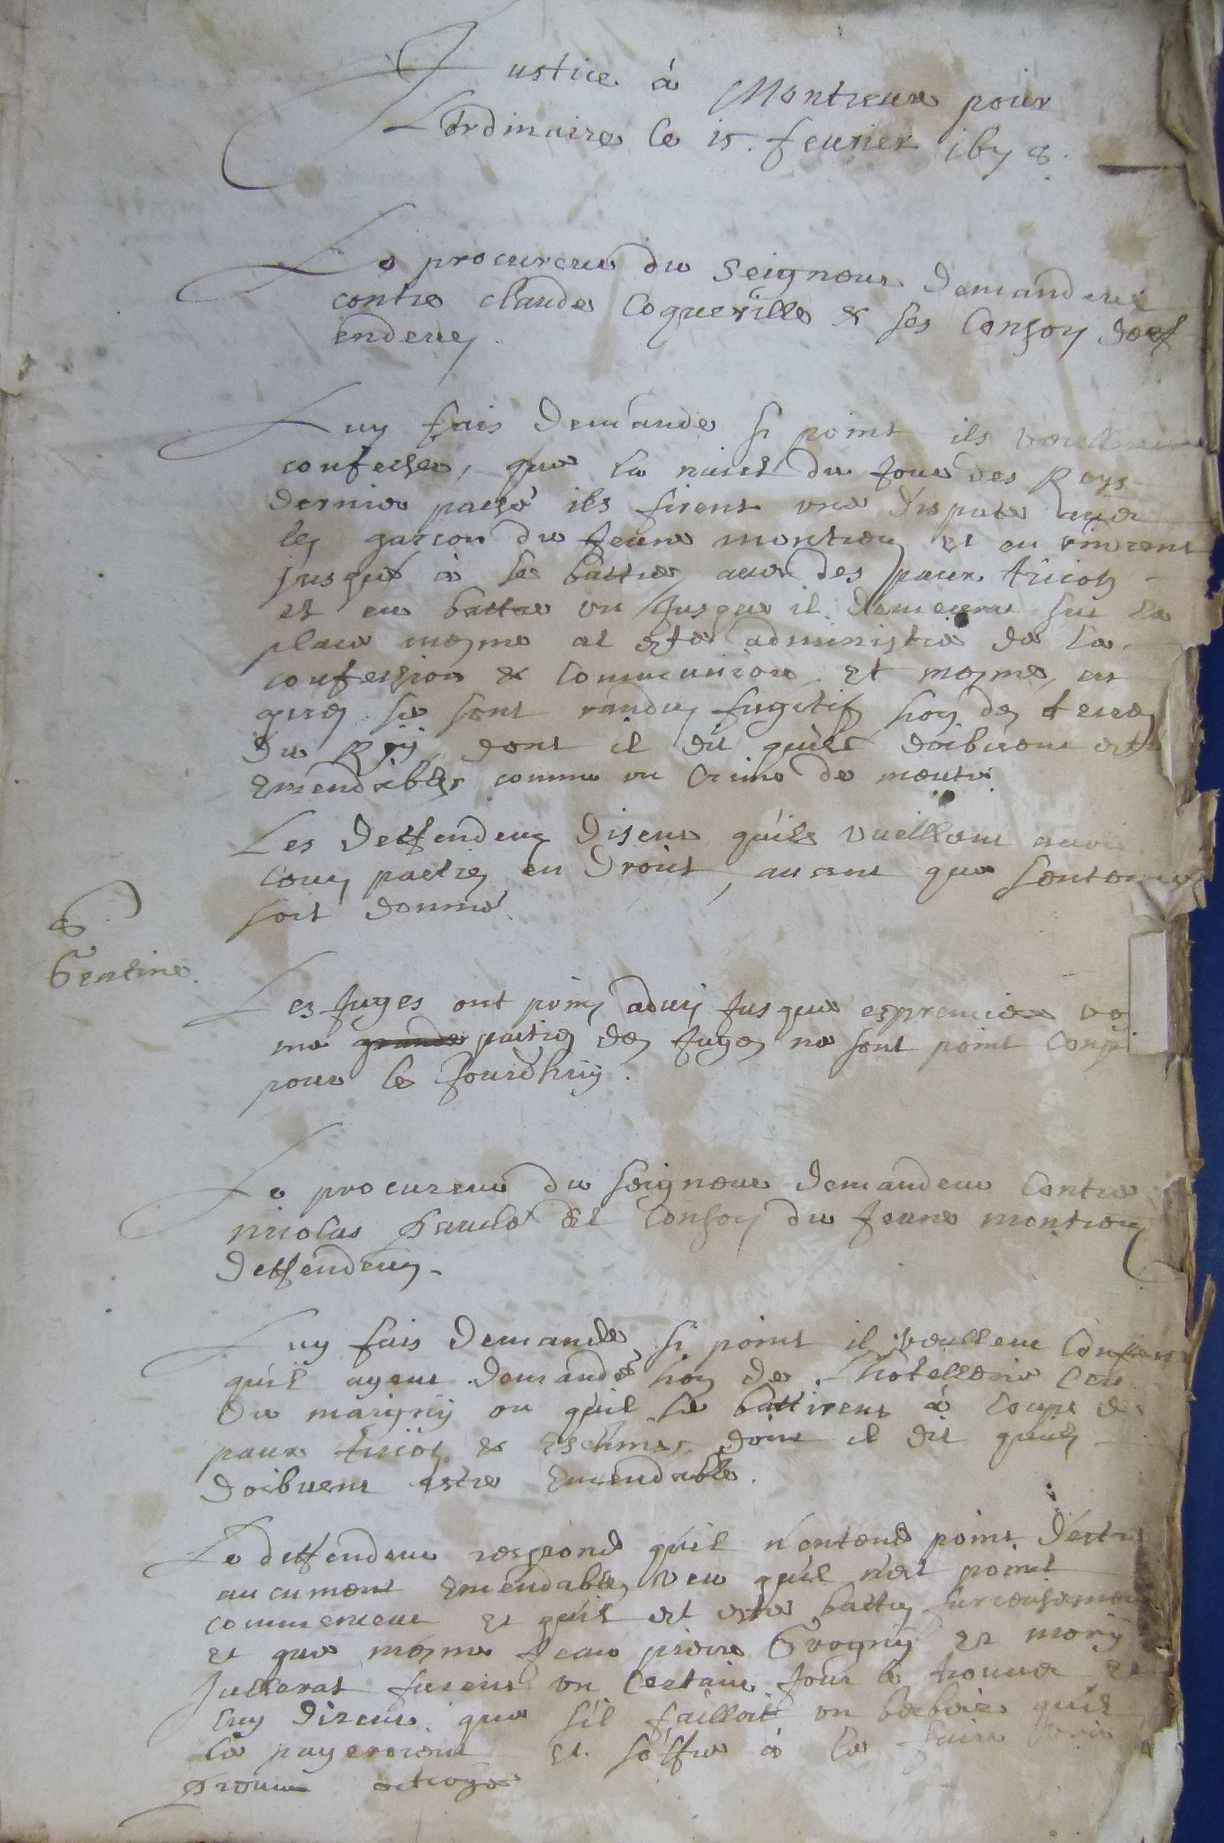 Justice à Montreux pour
L'ordinaire le 15. feurier 1678.
Le procureur du Seigneur Demandeur
contre Claude Coqueville & ses Consoy deff
endeur
Luy fais Demande si point ils veullent
confesser, que la nuict du Jour des Roys
dernier passé ils firent une dispute auec
les garcon du Jeune montreu et en vinrent
Jusque à se battre auec des paux
et en battre un Jusque il demeura sur la
place mesme at este administré de la
confession & Communion et mesme,
se sont randu fugitif hor des terre
du Roy, dont il dit quils doibuent estre
Emendables comme un Crime de meutre
Les deffendeur disent quils vueillent auoir
leur partie en droict, auant que sentence
soit donné.
Sentine.
Les Juges ont point aduis Jusque es premier
une grande partie des Juges ne sont point
pour le Jourdhuy.
Le procureur du seigneur demandeur contre
nicolas et Consoy du Jeune montreu
deffendeur
Luy fais demande si point il veullent
quil ayent demandé hor de l'hotellerie
du ou quil se battirent à coups de
paux & dont il dit quils
doibuent estre Emendable.
Le deffendeur respond quil n'entend point d'estre
aucunement Emendable veu quil n'est point
commenceur et quil est esté battu furieusement
et que mesme Jean pierre Grogny et
furent un certain Jour le trouuer et
luy dirent que s'il failloit un quil
la payeroient et s'offre à la faire
octroyé